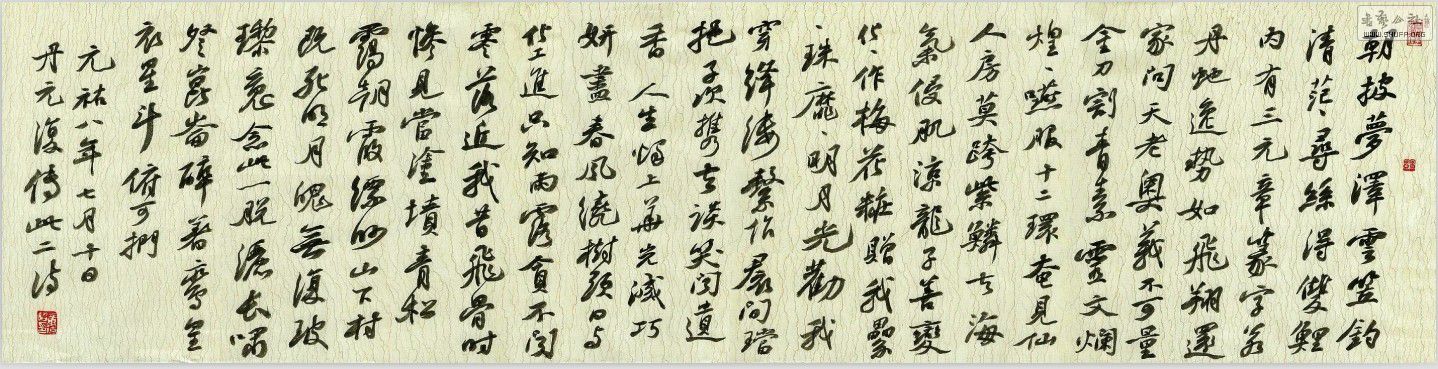 朝披夢澤雲笠釣
清茫〻尋絲得雙鯉
內有三元章篆字若
丹虵逸勢如飛翔還
家問天老奧義不可量
金刀割青素靈文爛
煌〻嚥服十二環奄見仙
人房莫跨紫鱗去海
氣侵肌涼龍子善變
化〻作梅花粧贈我纍
〻珠靡〻明月光勸我
穿絳縷繫作裙間璫
挹子以攜去談笑聞遺
香人生燭上華光滅巧
妍盡春風繞樹頭日與
化工進只知雨露貪不聞
零落近我昔飛骨時
慘見當塗墳青松
靄朝霞縹緲山下村
既死明月魄無復玻
瓈魂念此一脫灑長嘯
登崑崙醉著鸞皇
衣星斗俯可捫
元祐八年七月十日
丹元復傳此二詩
书艺公社
WWW.SHUFA.ORG